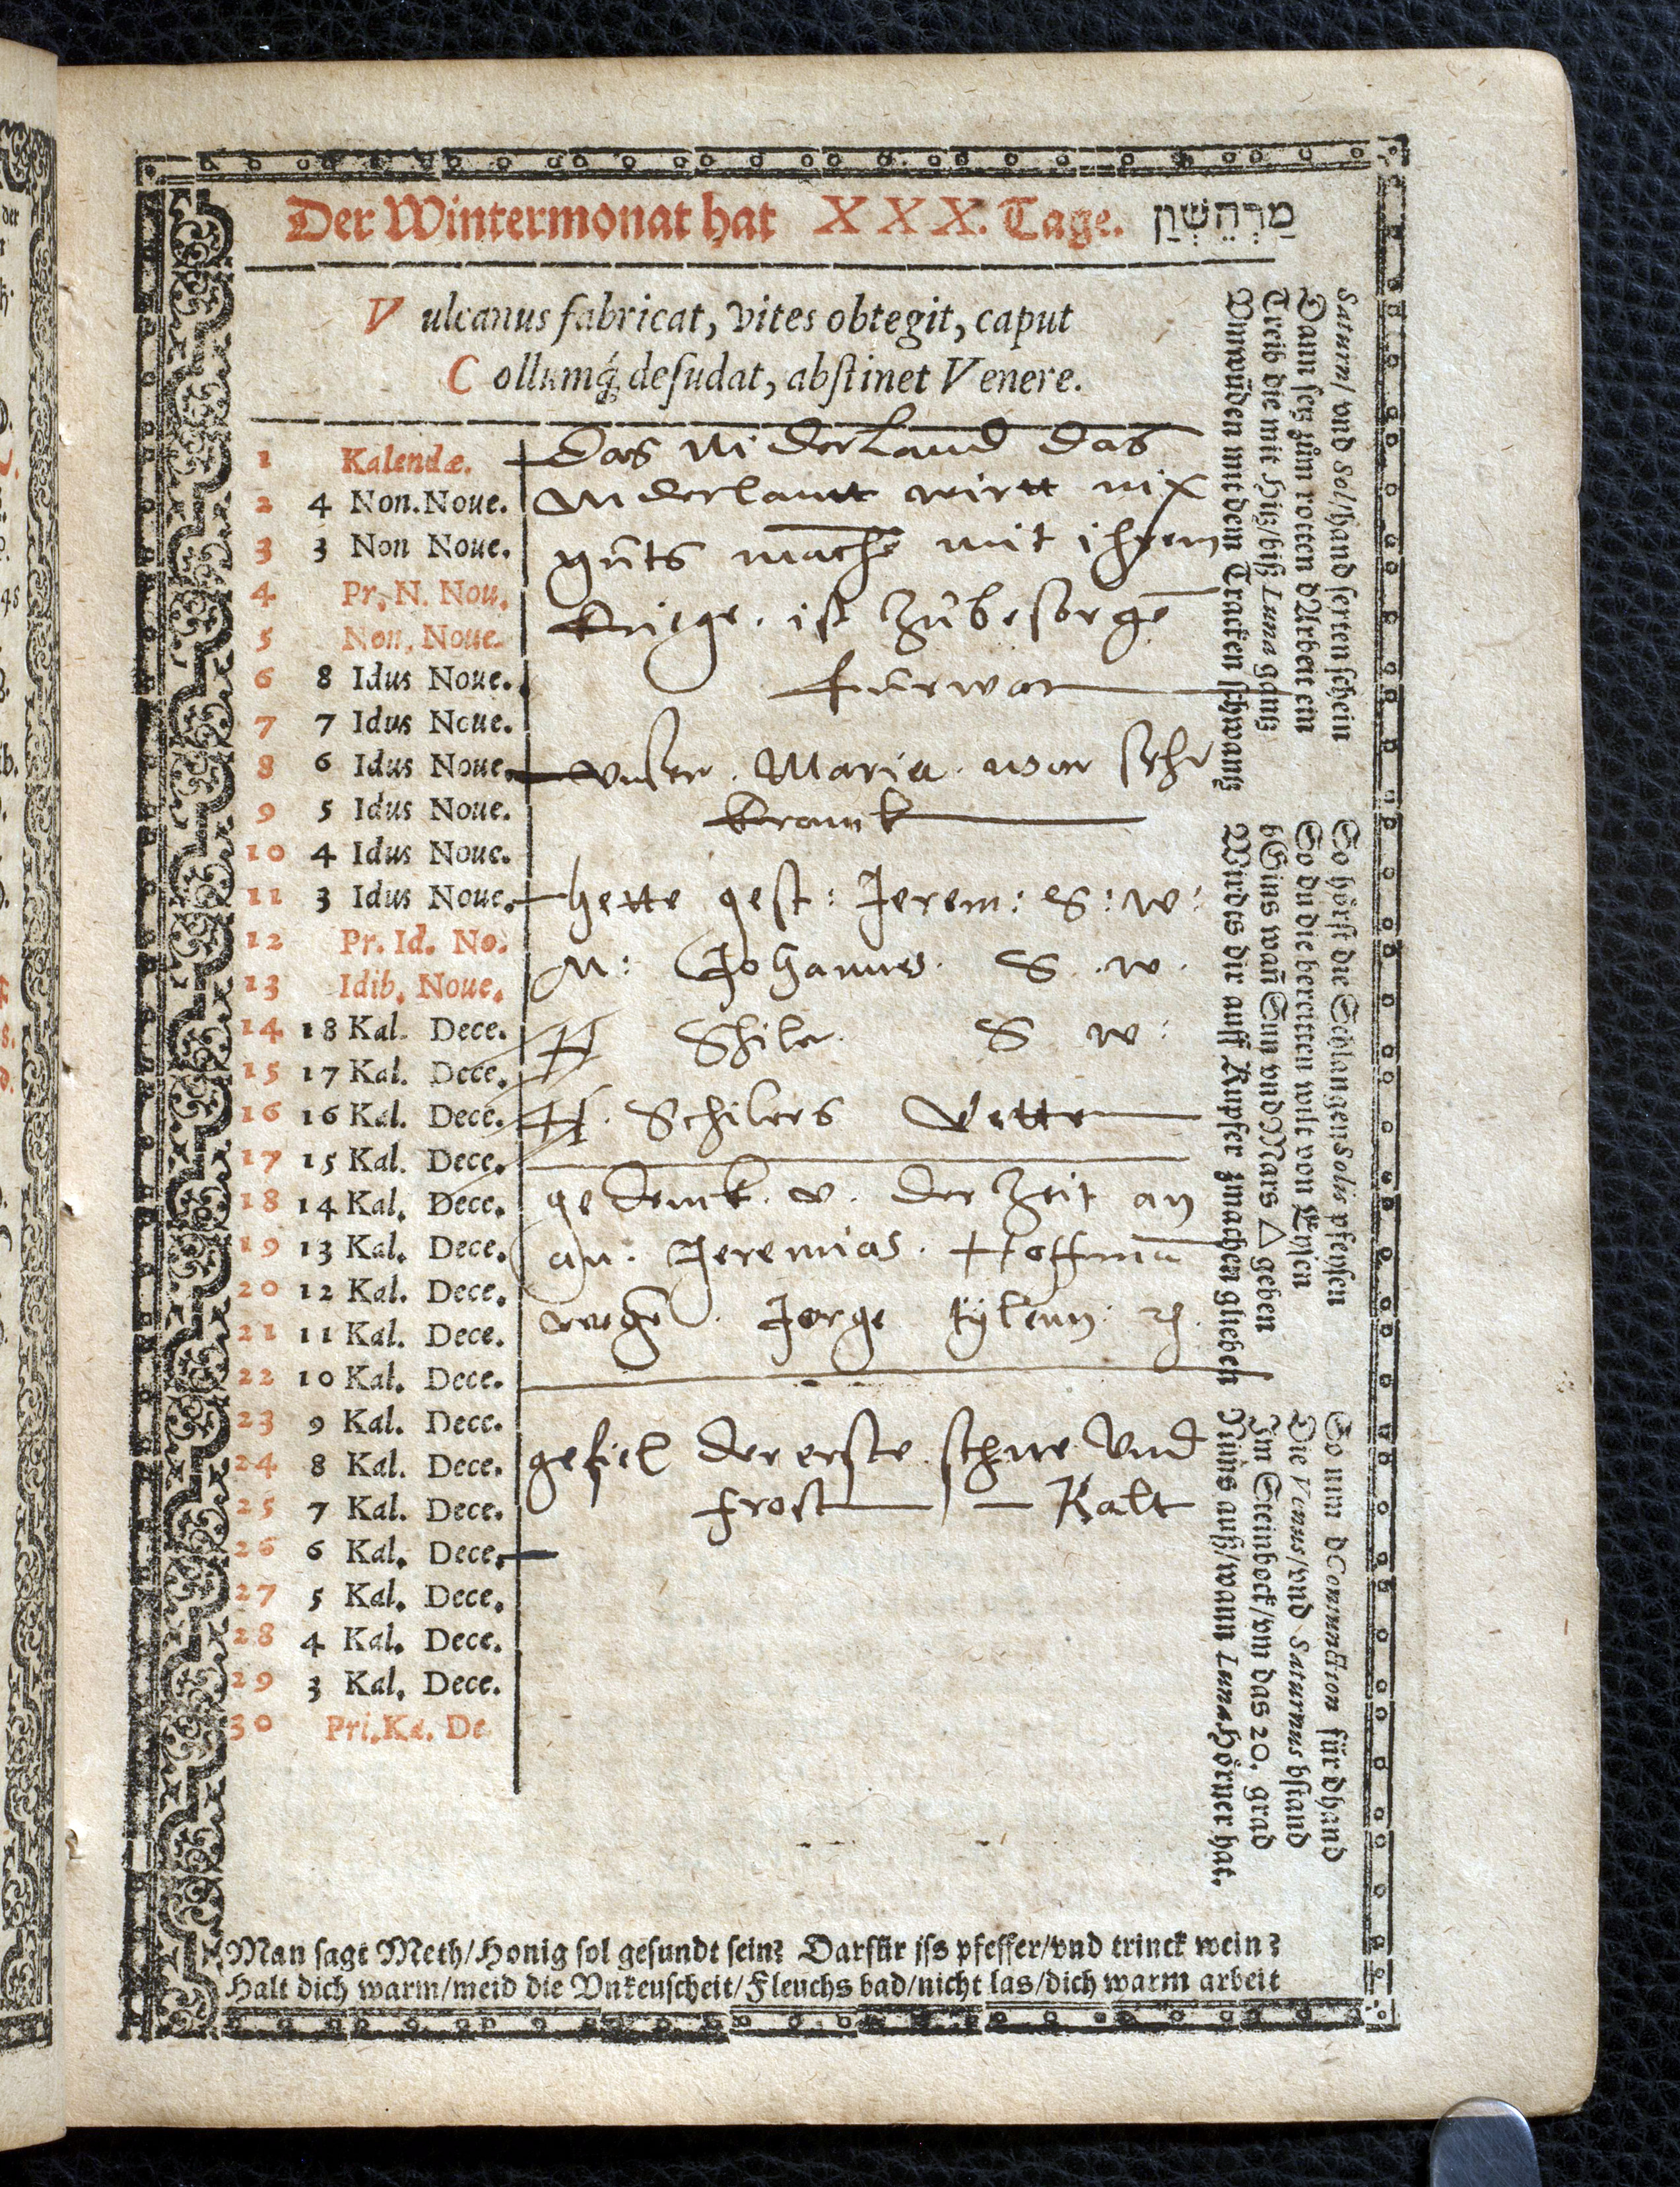 Der Wintermonat hat XXX. Tage. מַרְהֶשְׁוַן
Vulcanus fabricat, vites obtegit, caput
Collumq́; desudat, abstinet Venere.
1 Kalendæ. Das Niderland das
2 4 Non. Noue. Niderlantt wirtt nix
3 3 Non Noue. guts mache mit ihrem
4 Pr. N. Nou. kriege. ist zubesorgē
5 Non. Noue.
6 8 Idus Noue. furwar
7 7 Idus Noue.
8 6 Idus Noue. Unser. Maria. war sehr
9 5 Idus Noue. kranck
10 4 Idus Noue.
11 3 Idus Noue. hette gest: Jerem: S: w:
12 Pr. Id. No. M: Johannes. S. w.
13 Idib. Noue.
14 18 Kal. Dece. H Shiler. S w:
15 17 Kal. Dece.
16 16 Kal. Dece. H. Schilers Vette
17 15 Kal. Dece.
18 14 Kal. Dece. gedenck. v. der Zeit an
19 13 Kal. Dece. an. Jeremias. Hoffman
20 12 Kal. Dece. wegen. Jorge
21 11 Kal. Dece.
22 10 Kal. Dece.
23 9 Kal. Dece. gefiel der erste schne Und
24 8 Kal. Dece.
25 7 Kal. Dece. frost Kalt
26 6 Kal. Dece.
27 5 Kal. Dece.
28 4 Kal. Dece.
29 3 Kal. Dece.
30 Pri. Ka. De
Saturm/ vnd Sol/hand ferten schein
Dann setz zum rotten dArbeit ein
Treib die mit Hitz/biß Luna gantz
Vmwūden mit dem Tracken schwantz
So hörst die Schlangen Solis pfeyfen
So du die bereitten wilt von Eysen
bEins wañ Sun vnd Mars △ geben
Wirdts dir auff Kupfer zmachen glieben
So nun dConiunction für dhand
Die Venus/vnd Saturnus bstand
Im Steinbock/vm das 20. grad
Nims auß/wann Luna Hörner hat.
Man sagt Meth/Honig sol gesundt sein? Darfür iss pfeffer/vnd trinck wein?
Halt dich warm/meid die Vnkeuscheit/Fleuchs bad/nicht las/dich warm arbeit